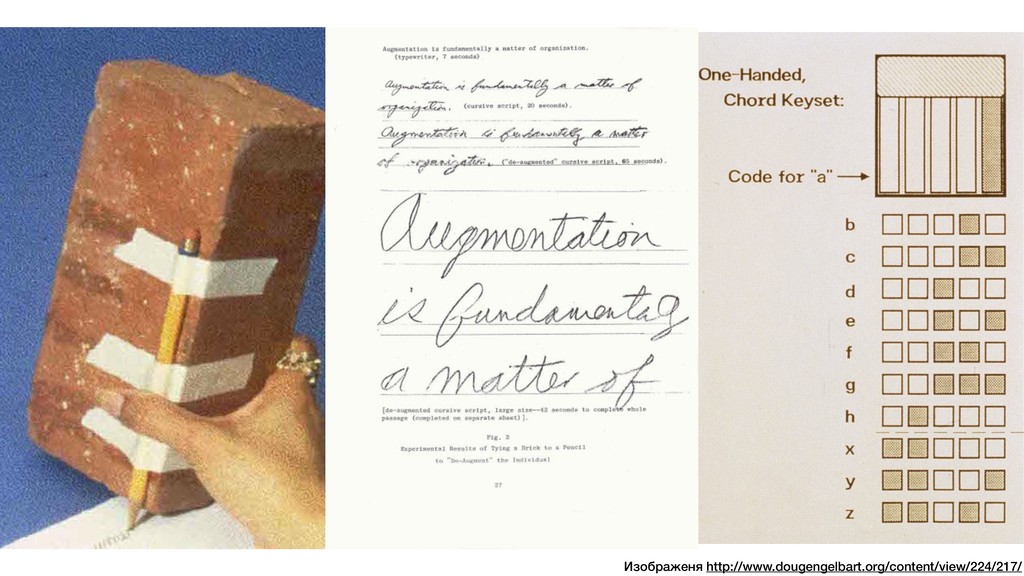 Augmentation is fundamentally a matter of organization.
(typewriter, 7 seconds)
Augmentation is fundamentally a matter of
organization. (cursive script, 20 seconds).
Augmentation is fundamentally a matter
of organization. ("de-augmented" cursive script, 65 seconds).
Augmentation
is fundamentag
a matter of
[de-augmented cursive script, large size--42 seconds to complete whole
passage (completed on separate sheet)].
Fig. 2
Experimental Results of Tying a Brick to a Pencil
to "De-Augment" the Individual
27
One-Handed,
Chord Keyset:
Code for "a"
b
c
d
e
f
g
h
x
y
z
Изображеня http://www.dougengelbart.org/content/view/224/217/